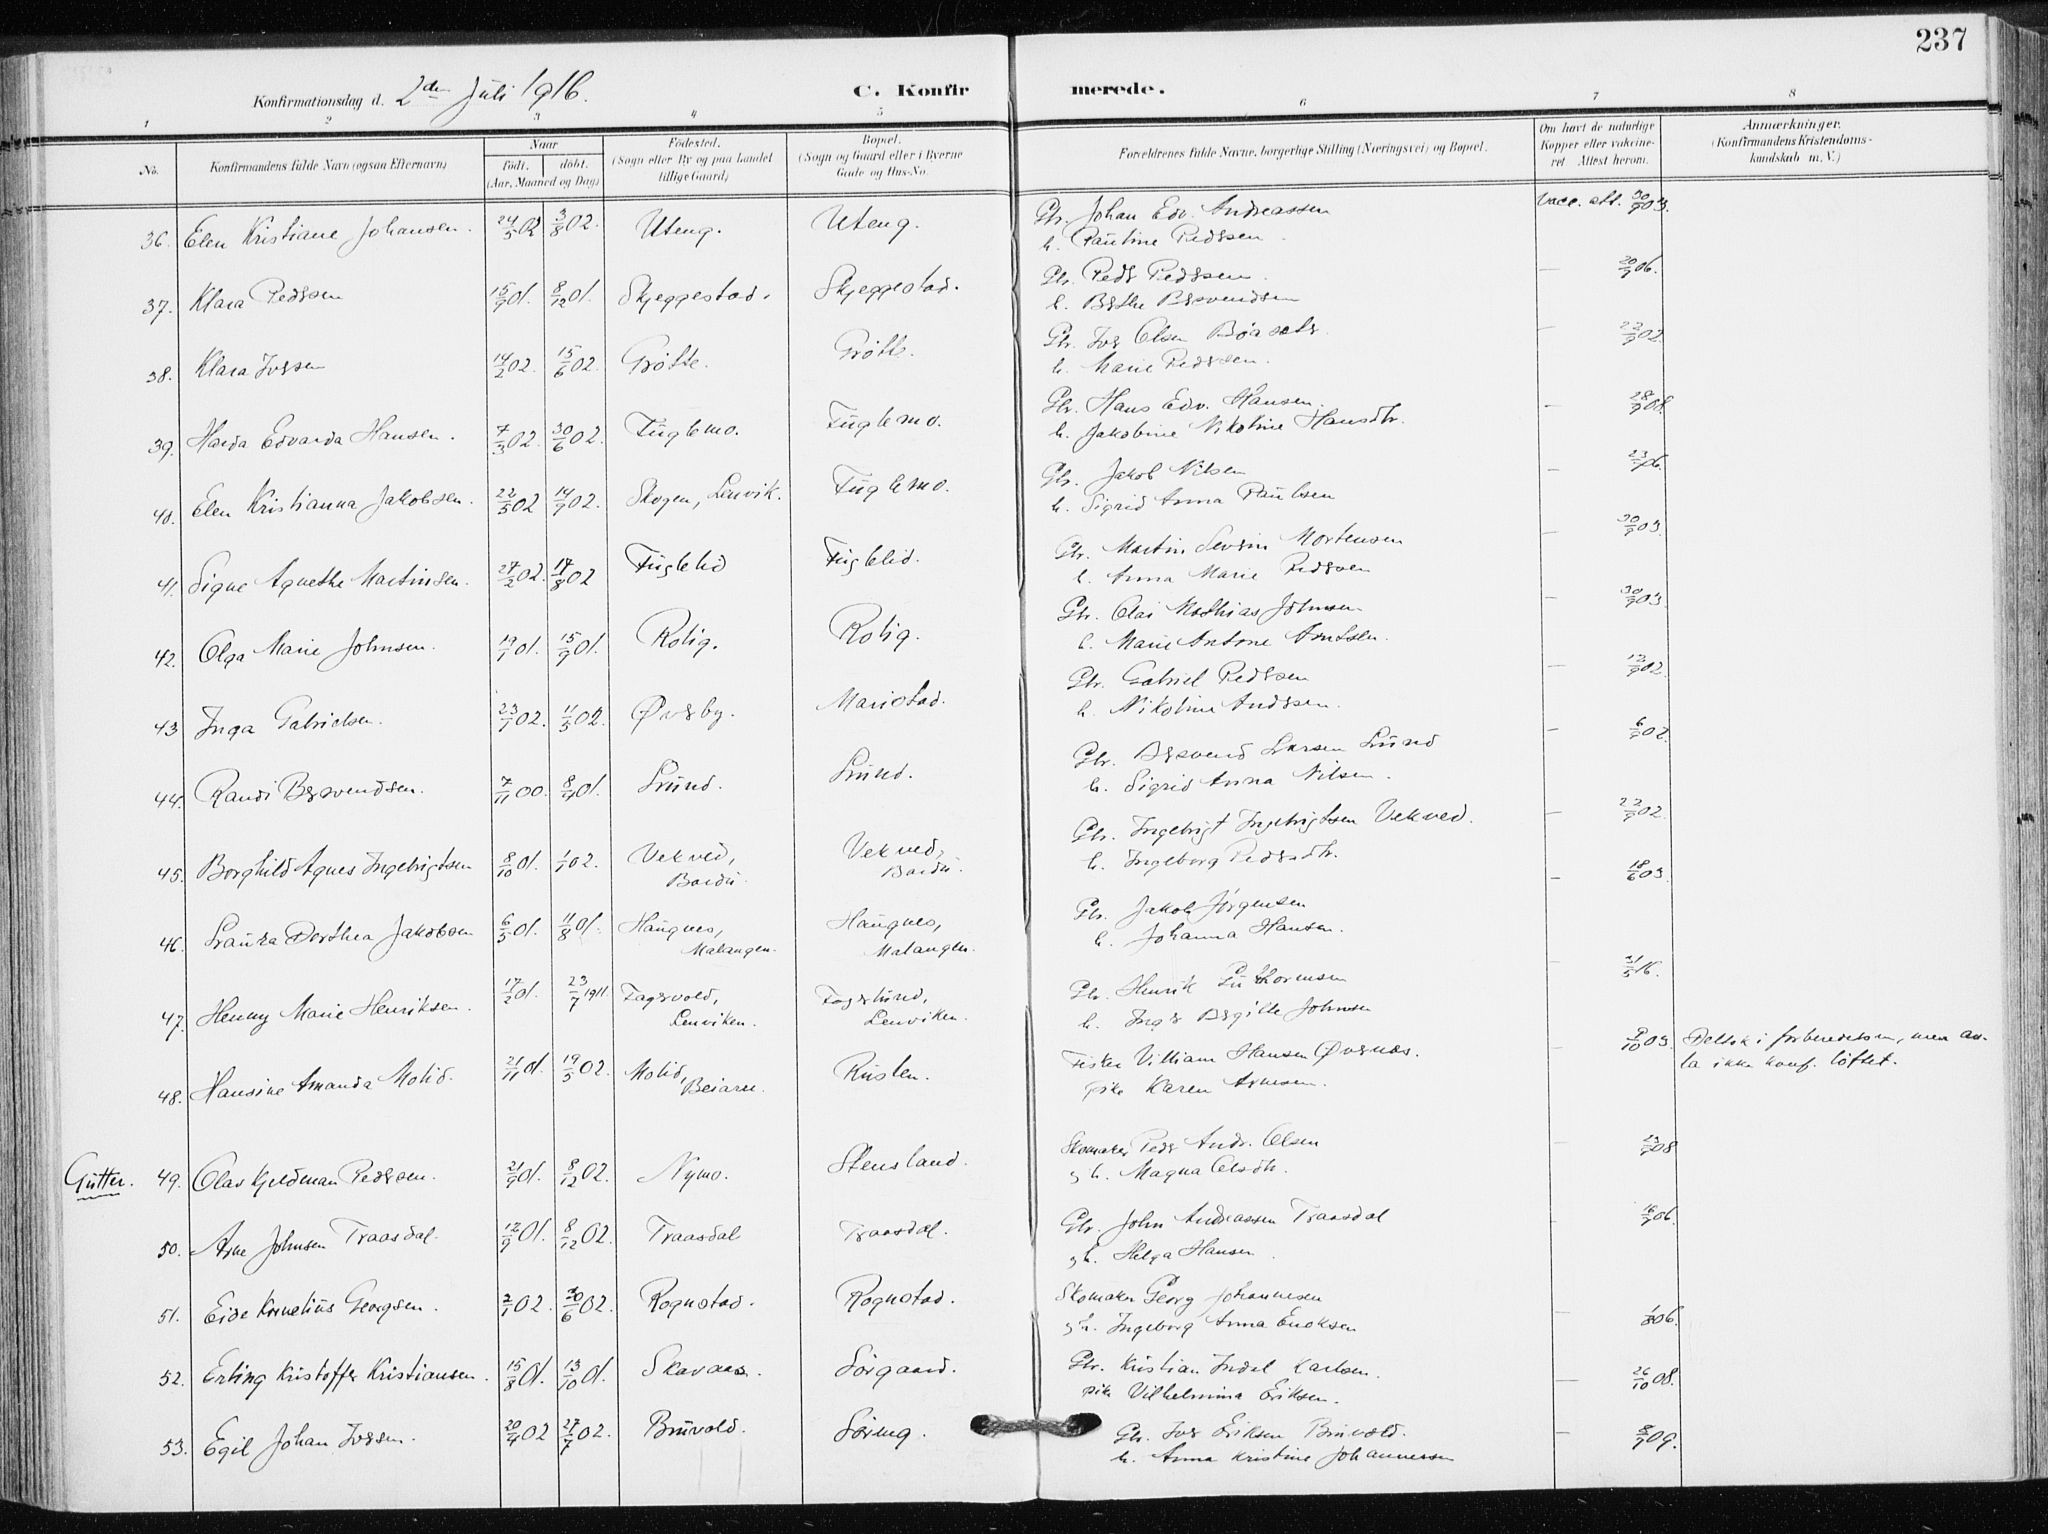 237
Konfirmationsdag d. 2den Juli 1916.
C. Konfirmerede.
1 2 3 4 5 6 7 8
No.
Konfirmandens fulde Navn (ogsaa Efternavn)
Naar
født. døbt.
(Aar, Maaned og Dag)
Fødested.
(Sogn eller By og paa Landet
tillige Gaard)
Bopæl.
(Sogn og Gaard eller i Byerne
Gade og Hus-No.
Forældrenes fulde Navne, borgerlige Stilling (Næringsvei) og Bopæl.
Om havt de naturlige
Kopper eller vakcine-
ret Attest herom.
Anmærkninger.
(Konfirmandens Kristendoms-
kundskab m. V.)
36. Elen Kristiane Johansen. 24/5 02 3/8 02. Uteng. Uteng. Gbr. Johan Edv. Andreassen Vacc. att. 30/9 03.
h. Pauline Pedersen.
37. Klara Pedersen 15/9 01. 8/12 01. Skjeggestad. Skjeggestad. Gbr. Peder Pedersen. — 20/9 06.
h. Berthe Bersvendsen
38. Klara Iversen 14/2 02. 15/6 02. Grøtte. Grøtte. Gbr. Iver Olsen Bøasæter. — 22/9 02.
h. Marie Pedersen.
39. Harda Edvarda Hansen. 7/3 02. 30/6 02. Fuglemo. Fuglemo. Gbr. Hans Edv. Hansen. —
h. Jakobine Nikoline Hansdtr.
40. Elen Kristianna Jakobsen. 22/5 02 14/9 02. Skogen, Lenvik. Fuglemo. Gbr. Jakob Nilsen —
h. Sigrid Anna Paulsen
41. Signe Agnethe Martinsen. 27/2 02. 17/8 02 Fuglelid Fuglelid. Gbr. Martin Severin Mortensen — 30/9 03.
h. Anna Marie Pedersen
42. Olga Marie Johnsen. 19/1 01. 15/9 01. Rolig. Rolig. Gbr. Olai Mathias Johnsen — 30/9 03.
h. Marie Antone Arntsen.
43 Inga Gabrielsen. 23/1 02. 11/5 02. Øverby. Maristad. Gbr. Gabriel Pedersen — 12/9 02.
h. Nikoline Andersen.
44. Randi Bersvendsen. 7/11 00. 8/4 01. Lund. Lund. Gbr. Bersvend Larsen Lund — 6/9 02.
h. Sigrid Anna Nilsen.
45. Borghild Agnes Ingebrigtsen 8/10 01. 1/1 02. Vekved, Vekved, Gbr. Ingebrigt Ingebrigtsen Vekved. — 22/9 02.
Bardu. Bardu. h. Ingeborg Pedersdtr.
46. Laura Dorthea Jakobsen 6/5 01. 11/8 01. Haugnes, Haugnes, Gbr. Jakob Jørgensen — 18/6 03.
Malangen. Malangen. h. Johanna Hansen.
47. Henny Marie Henriksen. 17/2 01. 23/7 1911. Fagervold, Fagerlund, Gbr. Henrik — 31/5 16.
Lenviken. Lenviken. h. Inger Bergitte Johnsen
48. Hansine Amanda Molid. 21/11 01. 19/5 02. Molid, Rusten. Fisker Villiam Hansen Øvernes. — 9/10 03. Deltok i forberedelsen, men av-
Beiarn. pike Karen Arnesen. la ikke konf. løftet.
Gutter. 49. Olav Hjeldman Pedersen. 21/9 01. 8/12 02. Nymo. Stensland. Skomaker Peder Andr. Olsen —
g h. Magna Olsdtr.
50. Arne Johnsen Traasdal. 12/9 01. 8/12 02. Traasdal Traasdal. Gbr. John Andreassen Traasdal —
g h. Helga Hansen.
51. Eide Kornelius Georgsen. 2/1 02. 30/6 02. Rognstad. Rognstad. Skomaker Georg Johannesen —
g h. Ingeborg Anna Enoksen
52. Erling Kristoffer Kristiansen. 15/8 01. 13/10 01. Skavaas. Sørgaard. Gbr. Kristian Indal Karlsen. — 26/10 08.
pike Vilhelmina Eriksen.
53. Egil Johan Iversen. 20/4 02 27/7 02. Bruvold. Søreng. Gbr. Iver Eriksen Bruvold. — 8/9 09.
h. Anna Kristine Johannessen